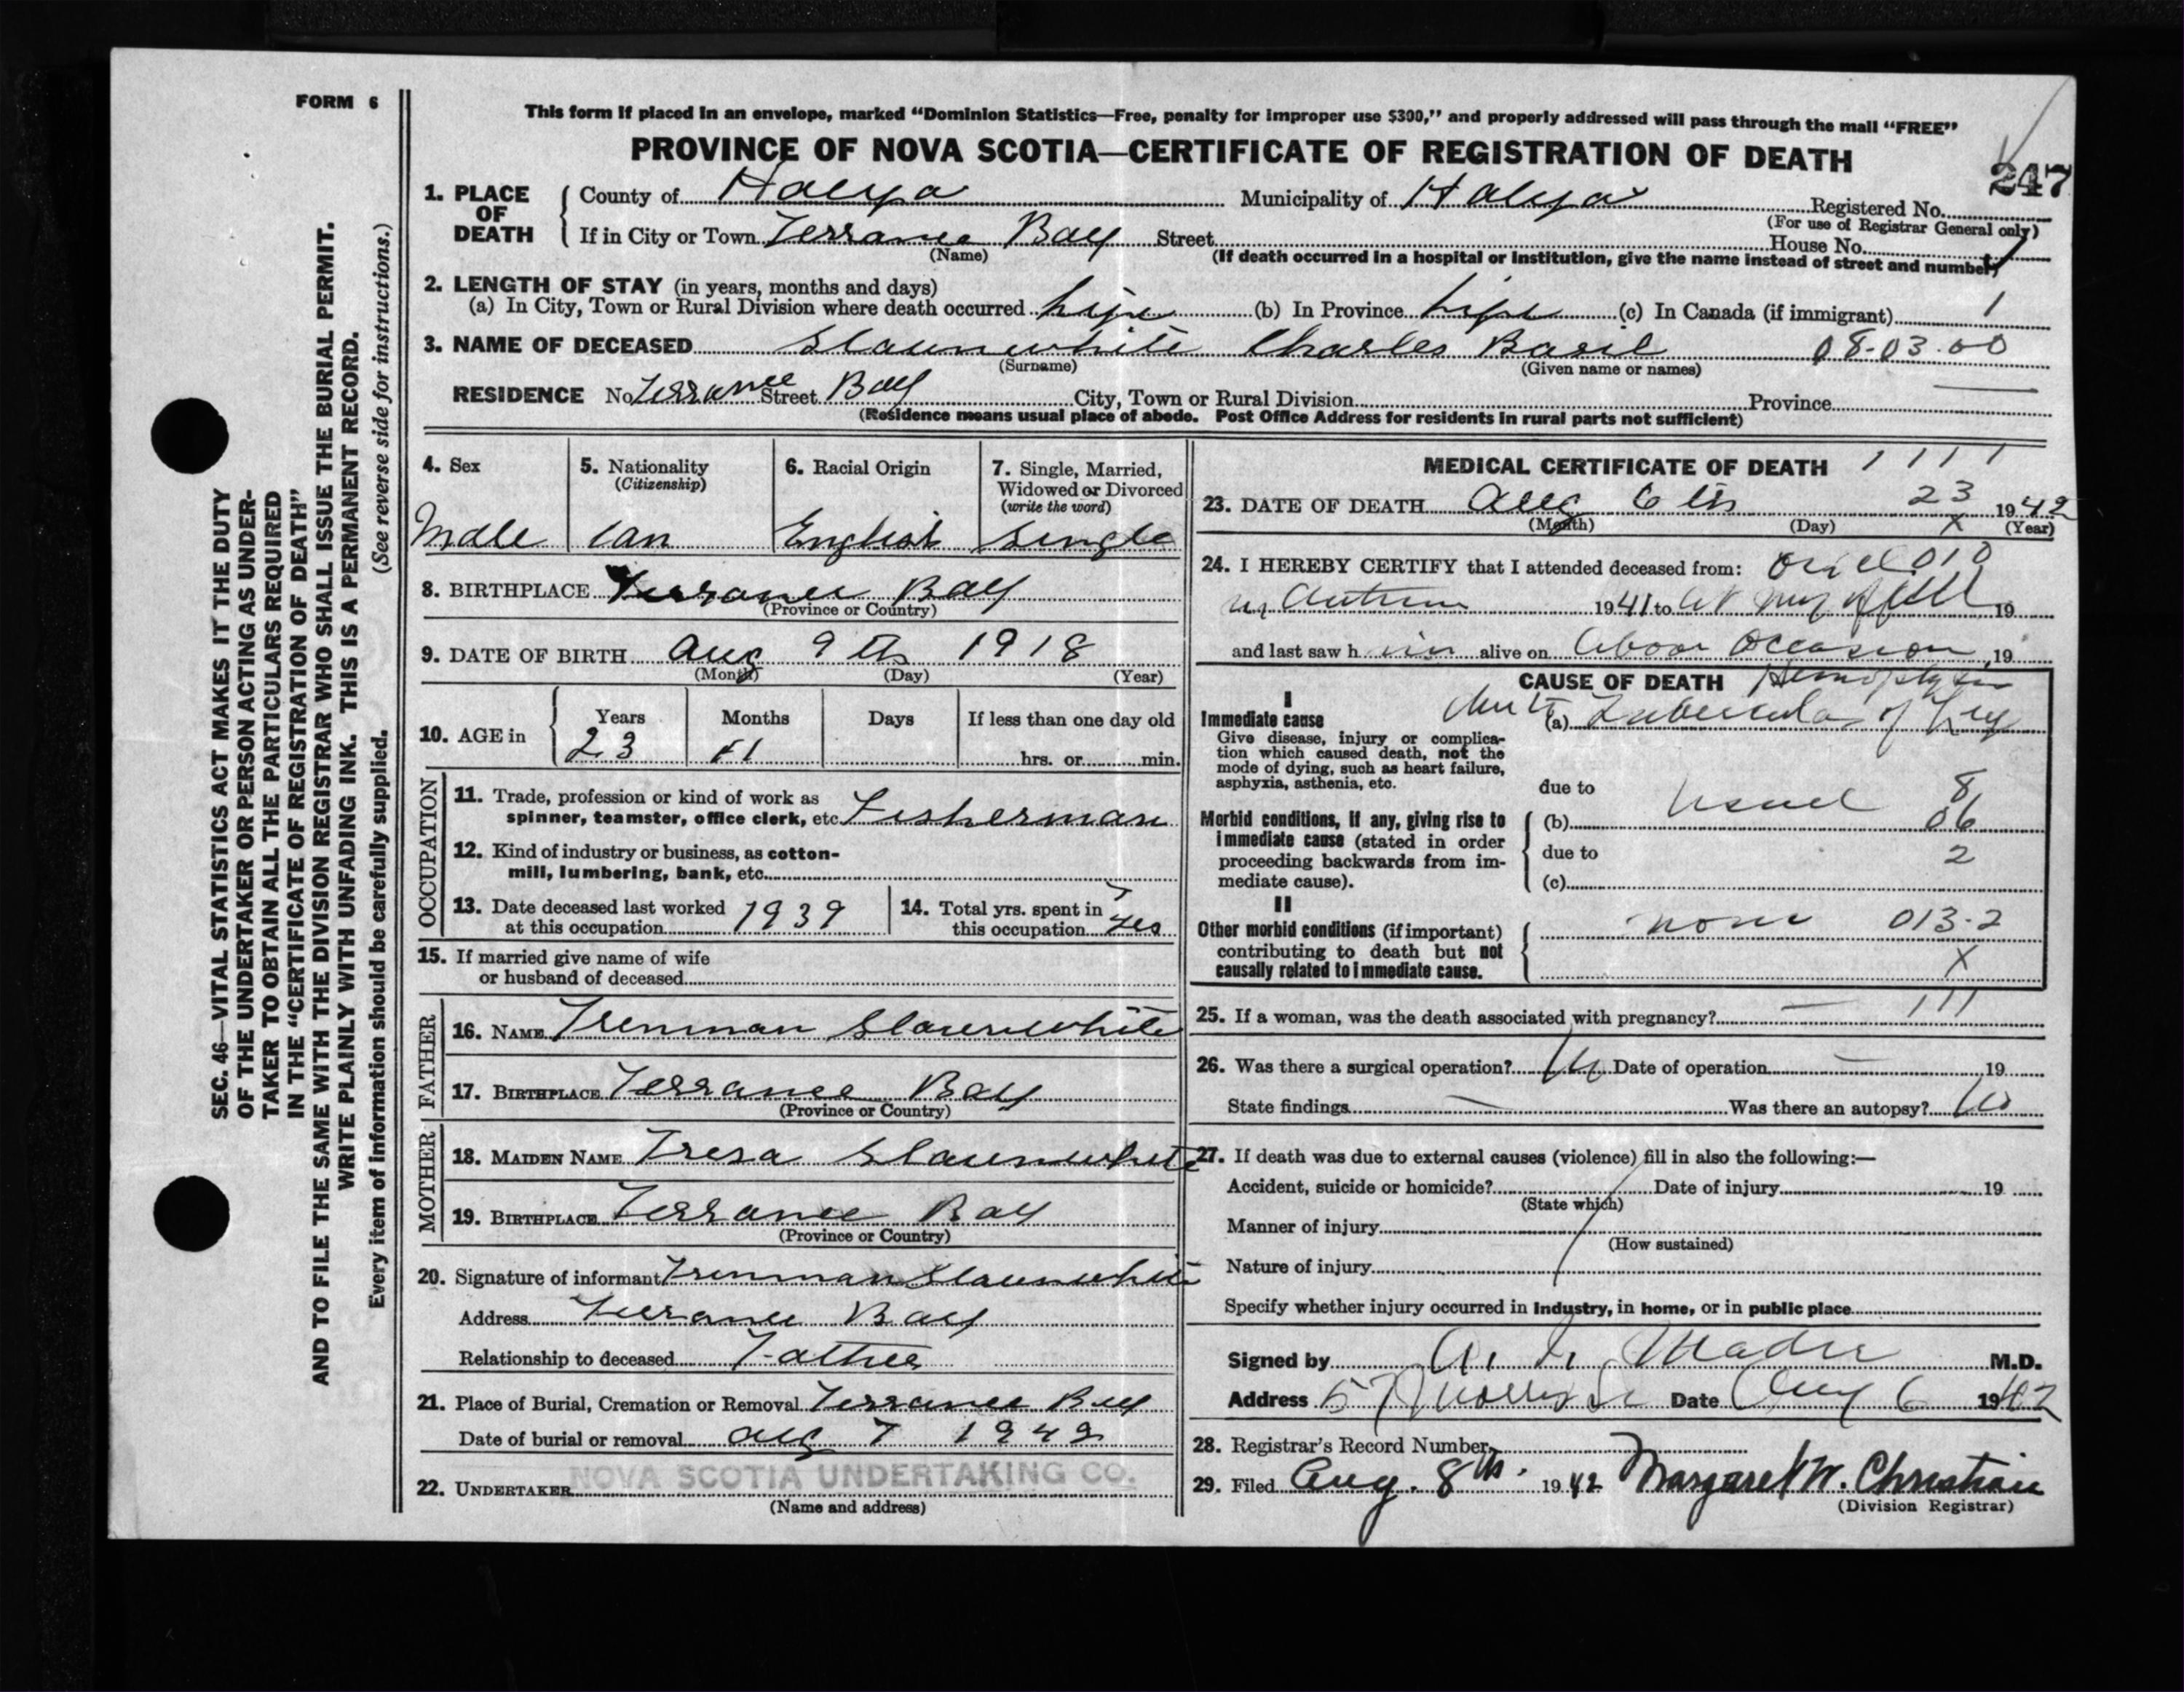 FORM 6
This form if placed in an envelope, marked "Dominion Statistics—Free, penalty for improper use $300," and properly addressed will pass through the mail "FREE"
PROVINCE OF NOVA SCOTIA—CERTIFICATE OF REGISTRATION OF DEATH
247
1. PLACE OF DEATH
County of Municipality of Registered No.
(For use of Registrar General only)
If in City or Town Terrance Bay Street House No.
(Name) (If death occurred in a hospital or institution, give the name instead of street and number)
2. LENGTH OF STAY (in years, months and days)
(a) In City, Town or Rural Division where death occurred life (b) In Province life (c) In Canada (if immigrant) 1
3. NAME OF DECEASED Slaunwhite Charles Basil 08-03.00
(Surname) (Given name or names)
RESIDENCE No Terrance Street Bay City, Town or Rural Division Province
(Residence means usual place of abode. Post Office Address for residents in rural parts not sufficient)
4. Sex Male
5. Nationality (Citizenship) Can
6. Racial Origin English
7. Single, Married, Widowed or Divorced (write the word) Single
8. BIRTHPLACE Terrance Bay
(Province or Country)
9. DATE OF BIRTH Aug 9th 1918
(Month) (Day) (Year)
10. AGE in Years 23 Months 11 Days If less than one day old hrs. or min.
OCCUPATION
11. Trade, profession or kind of work as
spinner, teamster, office clerk, etc. Fisherman
12. Kind of industry or business, as cotton-
mill, lumbering, bank, etc.
13. Date deceased last worked
at this occupation 1939
14. Total yrs. spent in
this occupation
15. If married give name of wife
or husband of deceased
FATHER
16. NAME Trenman Slaunwhite
17. BIRTHPLACE Terrance Bay
(Province or Country)
MOTHER
18. MAIDEN NAME Tresa Slaunwhite
19. BIRTHPLACE Terrance Bay
(Province or Country)
20. Signature of informant Trenman Slaunwhite
Address Terrance Bay
Relationship to deceased Father
21. Place of Burial, Cremation or Removal Terrance Bay
Date of burial or removal Aug 7 1942
22. UNDERTAKER NOVA SCOTIA UNDERTAKING CO.
(Name and address)
MEDICAL CERTIFICATE OF DEATH 1111
23. DATE OF DEATH Aug 6th 23 1942
(Month) (Day) X (Year)
24. I HEREBY CERTIFY that I attended deceased from: 010
1941 to at my office 19
and last saw h im alive on above occasion, 19
CAUSE OF DEATH Hemoptysis
I
Immediate cause
Give disease, injury or complica-
tion which caused death, not the
mode of dying, such as heart failure,
asphyxia, asthenia, etc.
(a) Tuberculosis of
due to usual 8
Morbid conditions, if any, giving rise to
immediate cause (stated in order
proceeding backwards from im-
mediate cause).
(b) 06
due to 2
(c)
II
Other morbid conditions (if important)
contributing to death but not
causally related to immediate cause.
none 013-2
X
25. If a woman, was the death associated with pregnancy? — 111
26. Was there a surgical operation? No Date of operation — 19
State findings — Was there an autopsy? No
27. If death was due to external causes (violence) fill in also the following:—
Accident, suicide or homicide? Date of injury 19
(State which)
Manner of injury
(How sustained)
Nature of injury
Specify whether injury occurred in industry, in home, or in public place
Signed by M.D.
Address 57 Morris St Date Aug 6 1942
28. Registrar's Record Number
29. Filed Aug. 8th. 1942 Margaret W. Christian
(Division Registrar)
SEC. 46—VITAL STATISTICS ACT MAKES IT THE DUTY
OF THE UNDERTAKER OR PERSON ACTING AS UNDER-
TAKER TO OBTAIN ALL THE PARTICULARS REQUIRED
IN THE "CERTIFICATE OF REGISTRATION OF DEATH"
AND TO FILE THE SAME WITH THE DIVISION REGISTRAR WHO SHALL ISSUE THE BURIAL PERMIT.
WRITE PLAINLY WITH UNFADING INK. THIS IS A PERMANENT RECORD.
Every item of information should be carefully supplied. (See reverse side for instructions.)